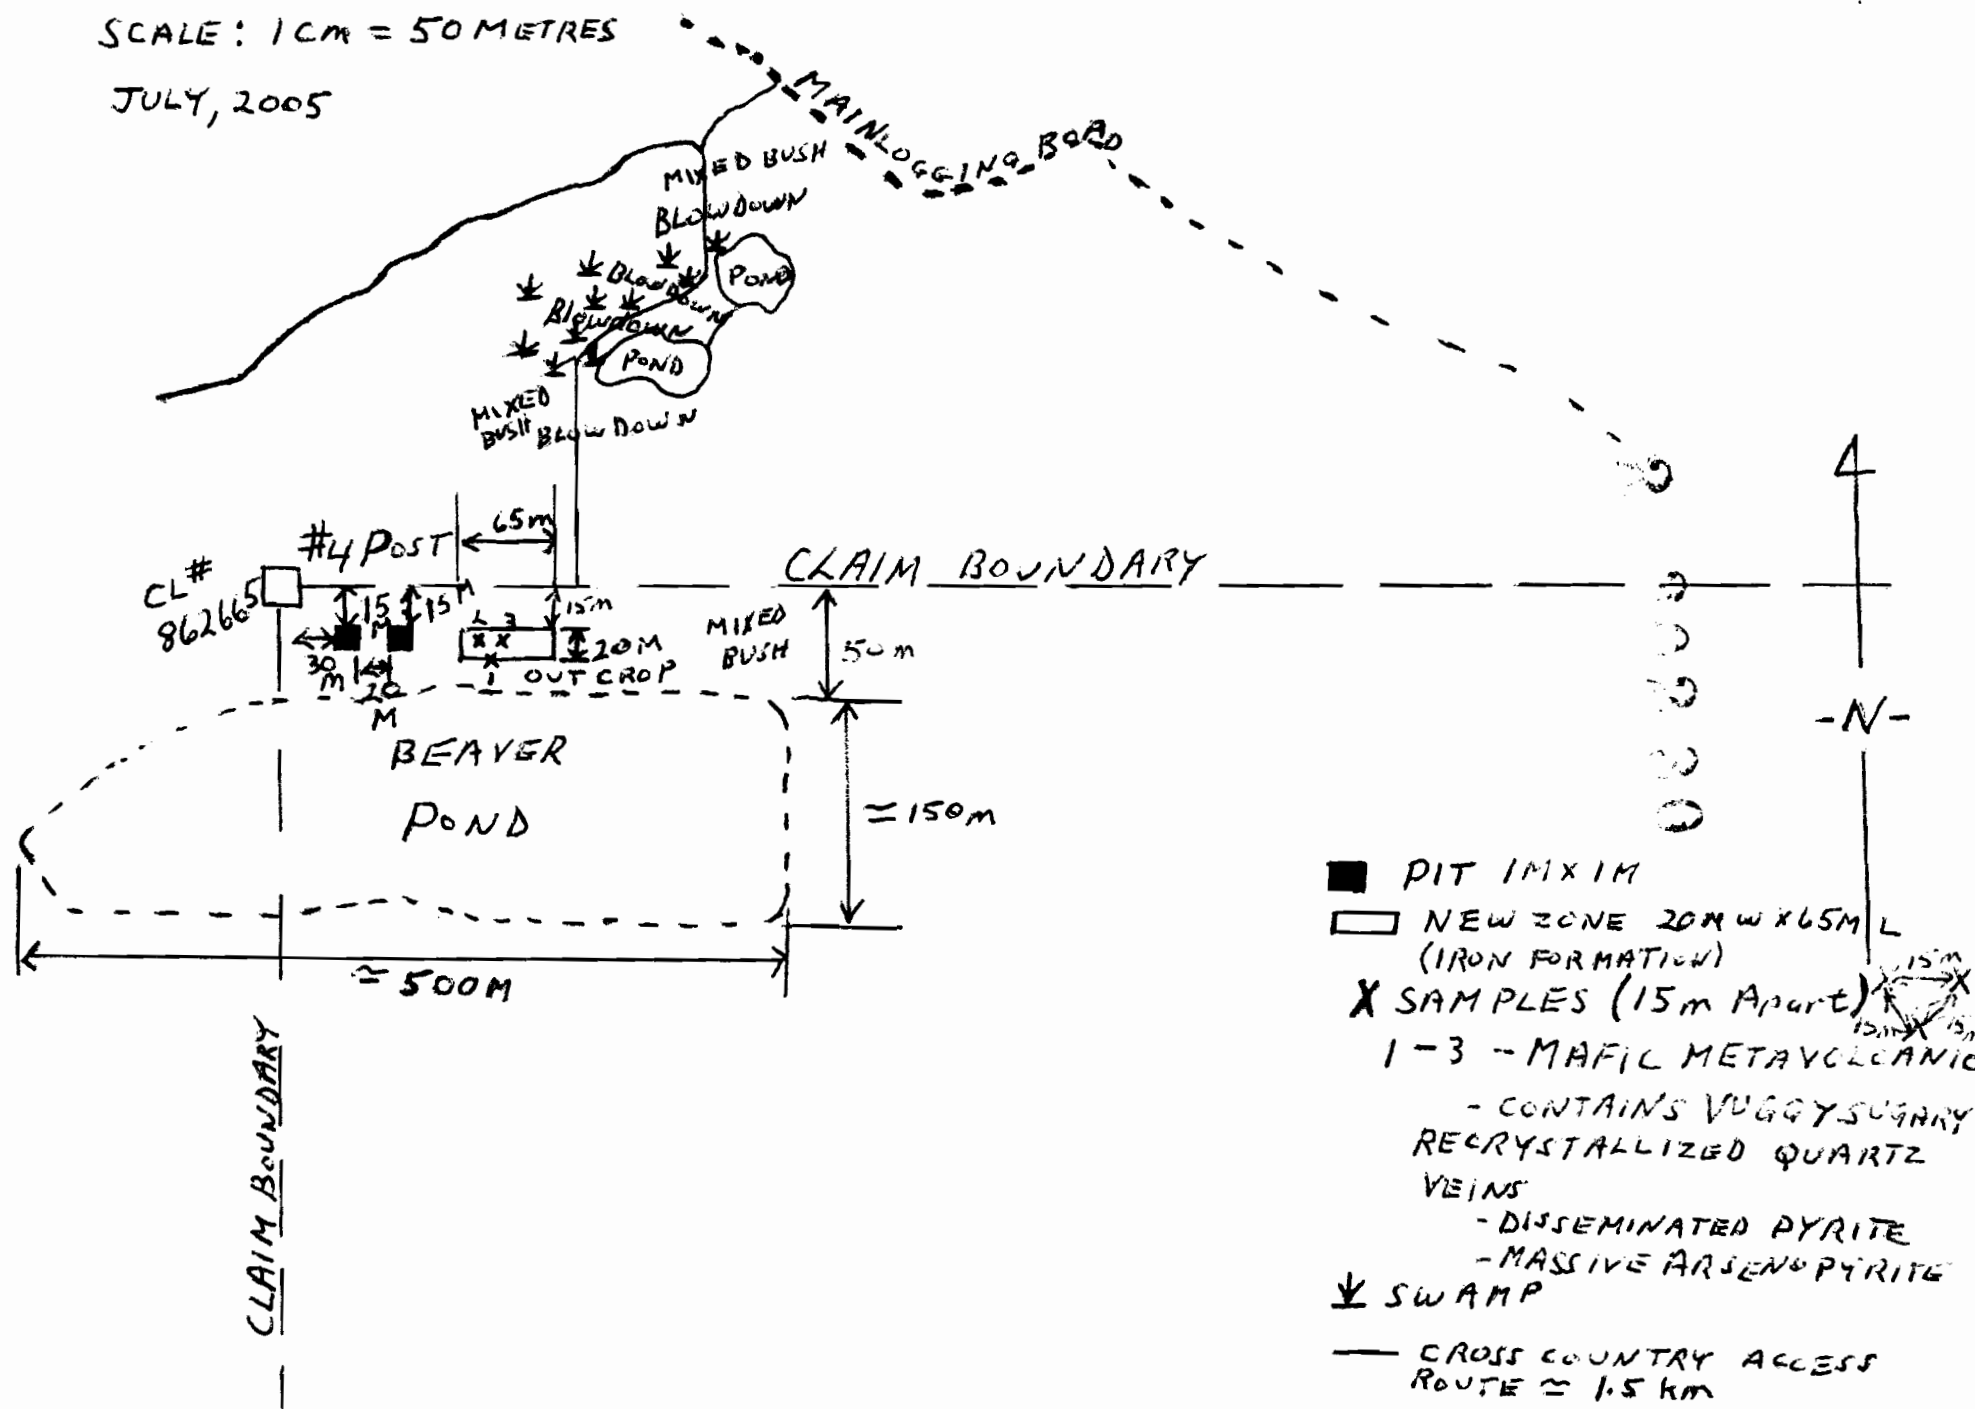 SCALE: 1 cm = 50 METRES
JULY, 2005
MAIN LOGGING ROAD
MIXED BUSH
BLOWDOWN
POND
BLOWDOWN
Blowdown
POND
MIXED
BUSH BLOWDOWN
65m
#4 POST
CLAIM BOUNDARY
CL#
862665
15
M
15M
15m
2 3
1
20M
OUTCROP
MIXED
BUSH
50m
30
M
20
M
BEAVER
POND
≃150m
≃500M
CLAIM BOUNDARY
-N-
PIT 1M X 1M
NEW ZONE 20M W X 65M L
(IRON FORMATION)
X SAMPLES (15m Apart)
15m
15m
15m
1-3 - MAFIC METAVOLCANIC
- CONTAINS VUGGY SUGARY
RECRYSTALLIZED QUARTZ
VEINS
- DISSEMINATED PYRITE
- MASSIVE ARSENOPYRITE
SWAMP
CROSS COUNTRY ACCESS
ROUTE ≃ 1.5 km